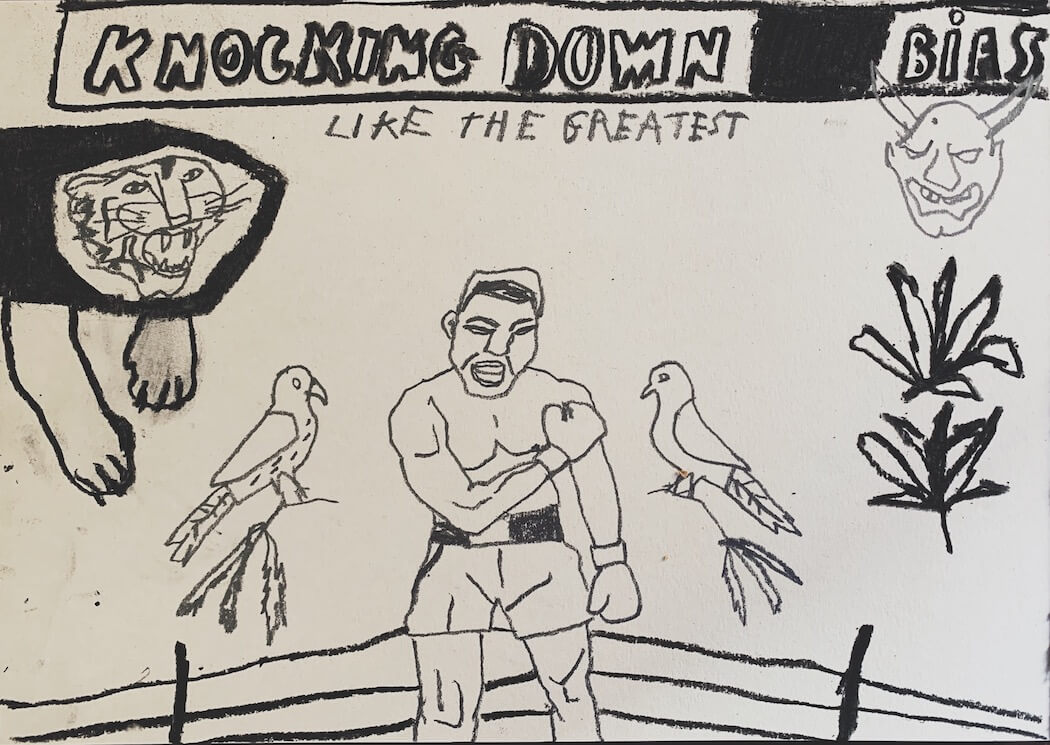 KNOCKING DOWN BiAS
LIKE THE GREATEST